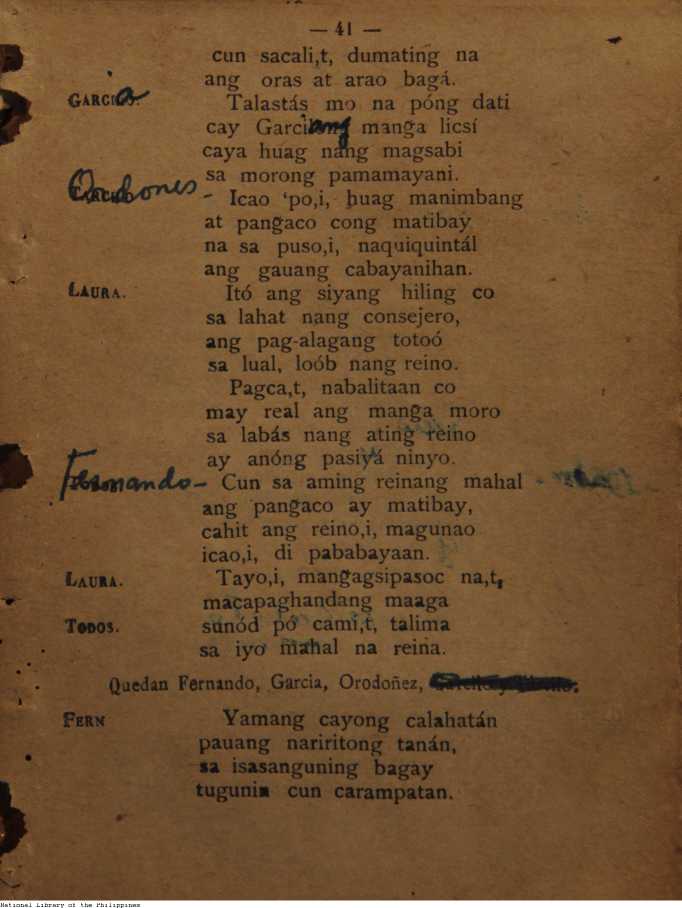 — 41 —
cun sacali,t, dumating na
ang oras at arao bagá.
GARCIA Talastás mo na póng dati
cay Garciang manga licsí
caya huag nang magsabi
sa morong pamamayani.
Ordoones - Icao ‘po,i, huag manimbang
at pangaco cong matibay
na sa puso,i, naquiquintál
ang gauang cabayanihan.
LAURA. Itó ang siyang hiling co
sa lahat nang consejero,
ang pag-alagang totoó
sa lual, loób nang reino.
Pagca,t, nabalitaan co
may real ang mang̃a moro
sa labás nang ating̃ reino
ay anóng pasiyá ninyo.
Fernando - Cun sa aming reinang mahal
ang pang̃aco ay matibay,
cahit ang reino,i, magunao
icao,i, di pababayaan.
LAURA. Tayo,i, mang̃agsipasoc na,t,
macapaghandang maaga
TODOS. sunód pó cami,t, talima
sa iyo mahal na reina.
Quedan Fernando, Garcia, Orodoñez,
FERN Yamang cayong calahatán
pauang nariritong tanán,
sa isasanguning bagay
tugunin cun carampatan.
National Library of the Philippines